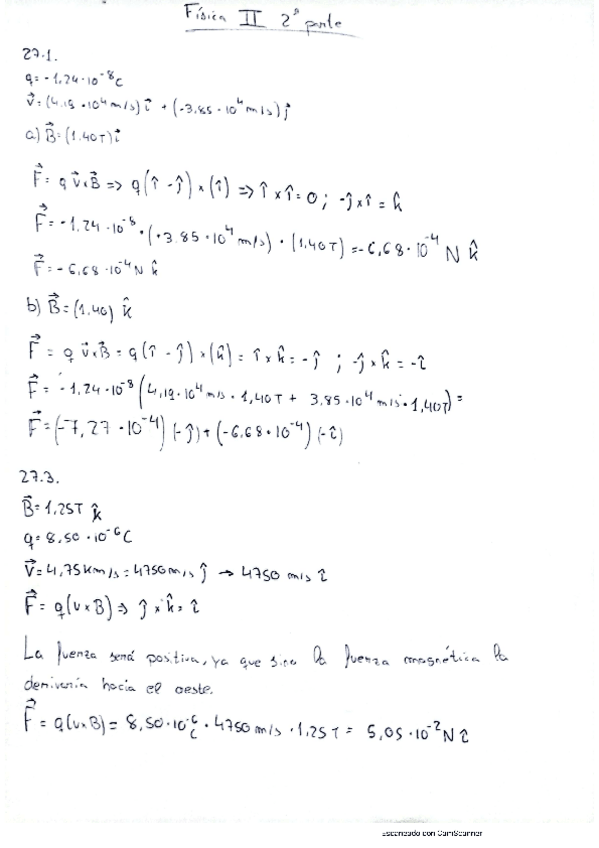 Física II 2ª parte
27.1.
q = -1,24·10⁻⁸ C
v⃗ = (4,19·10⁴ m/s) î + (-3,85·10⁴ m/s) ĵ
a) B⃗ = (1.40T) î
F⃗ = q v⃗ x B⃗ => q (î - ĵ) x (î) => î x î = 0 ; -ĵ x î = k̂
F⃗ = -1,24·10⁻⁸ · (+3.85·10⁴ m/s) · (1,40T) = -6,68·10⁻⁴ N k̂
F⃗ = -6,68·10⁻⁴ N k̂
b) B⃗ = (1.40) k̂
F⃗ = q v⃗ x B⃗ = q (î - ĵ) x (k̂) = î x k̂ = -ĵ ; -ĵ x k̂ = -î
F⃗ = -1,24·10⁻⁸ (4,19·10⁴ m/s · 1,40T + 3,85·10⁴ m/s · 1,40T) =
F⃗ = (-7,27·10⁻⁴) (-ĵ) + (-6,68·10⁻⁴) (-î)
27.3.
B⃗ = 1,25T k̂
q = 8,50·10⁻⁶ C
v⃗ = 4,75 km/s = 4750 m/s ĵ → 4750 m/s î
F⃗ = q (v x B) => ĵ x k̂ = î
La fuerza será positiva, ya que sino la fuerza magnética la
derivaría hacia el oeste.
F⃗ = q (v x B) = 8,50·10⁻⁶ C · 4750 m/s · 1,25T = 5,05·10⁻² N î
Escaneado con CamScanner